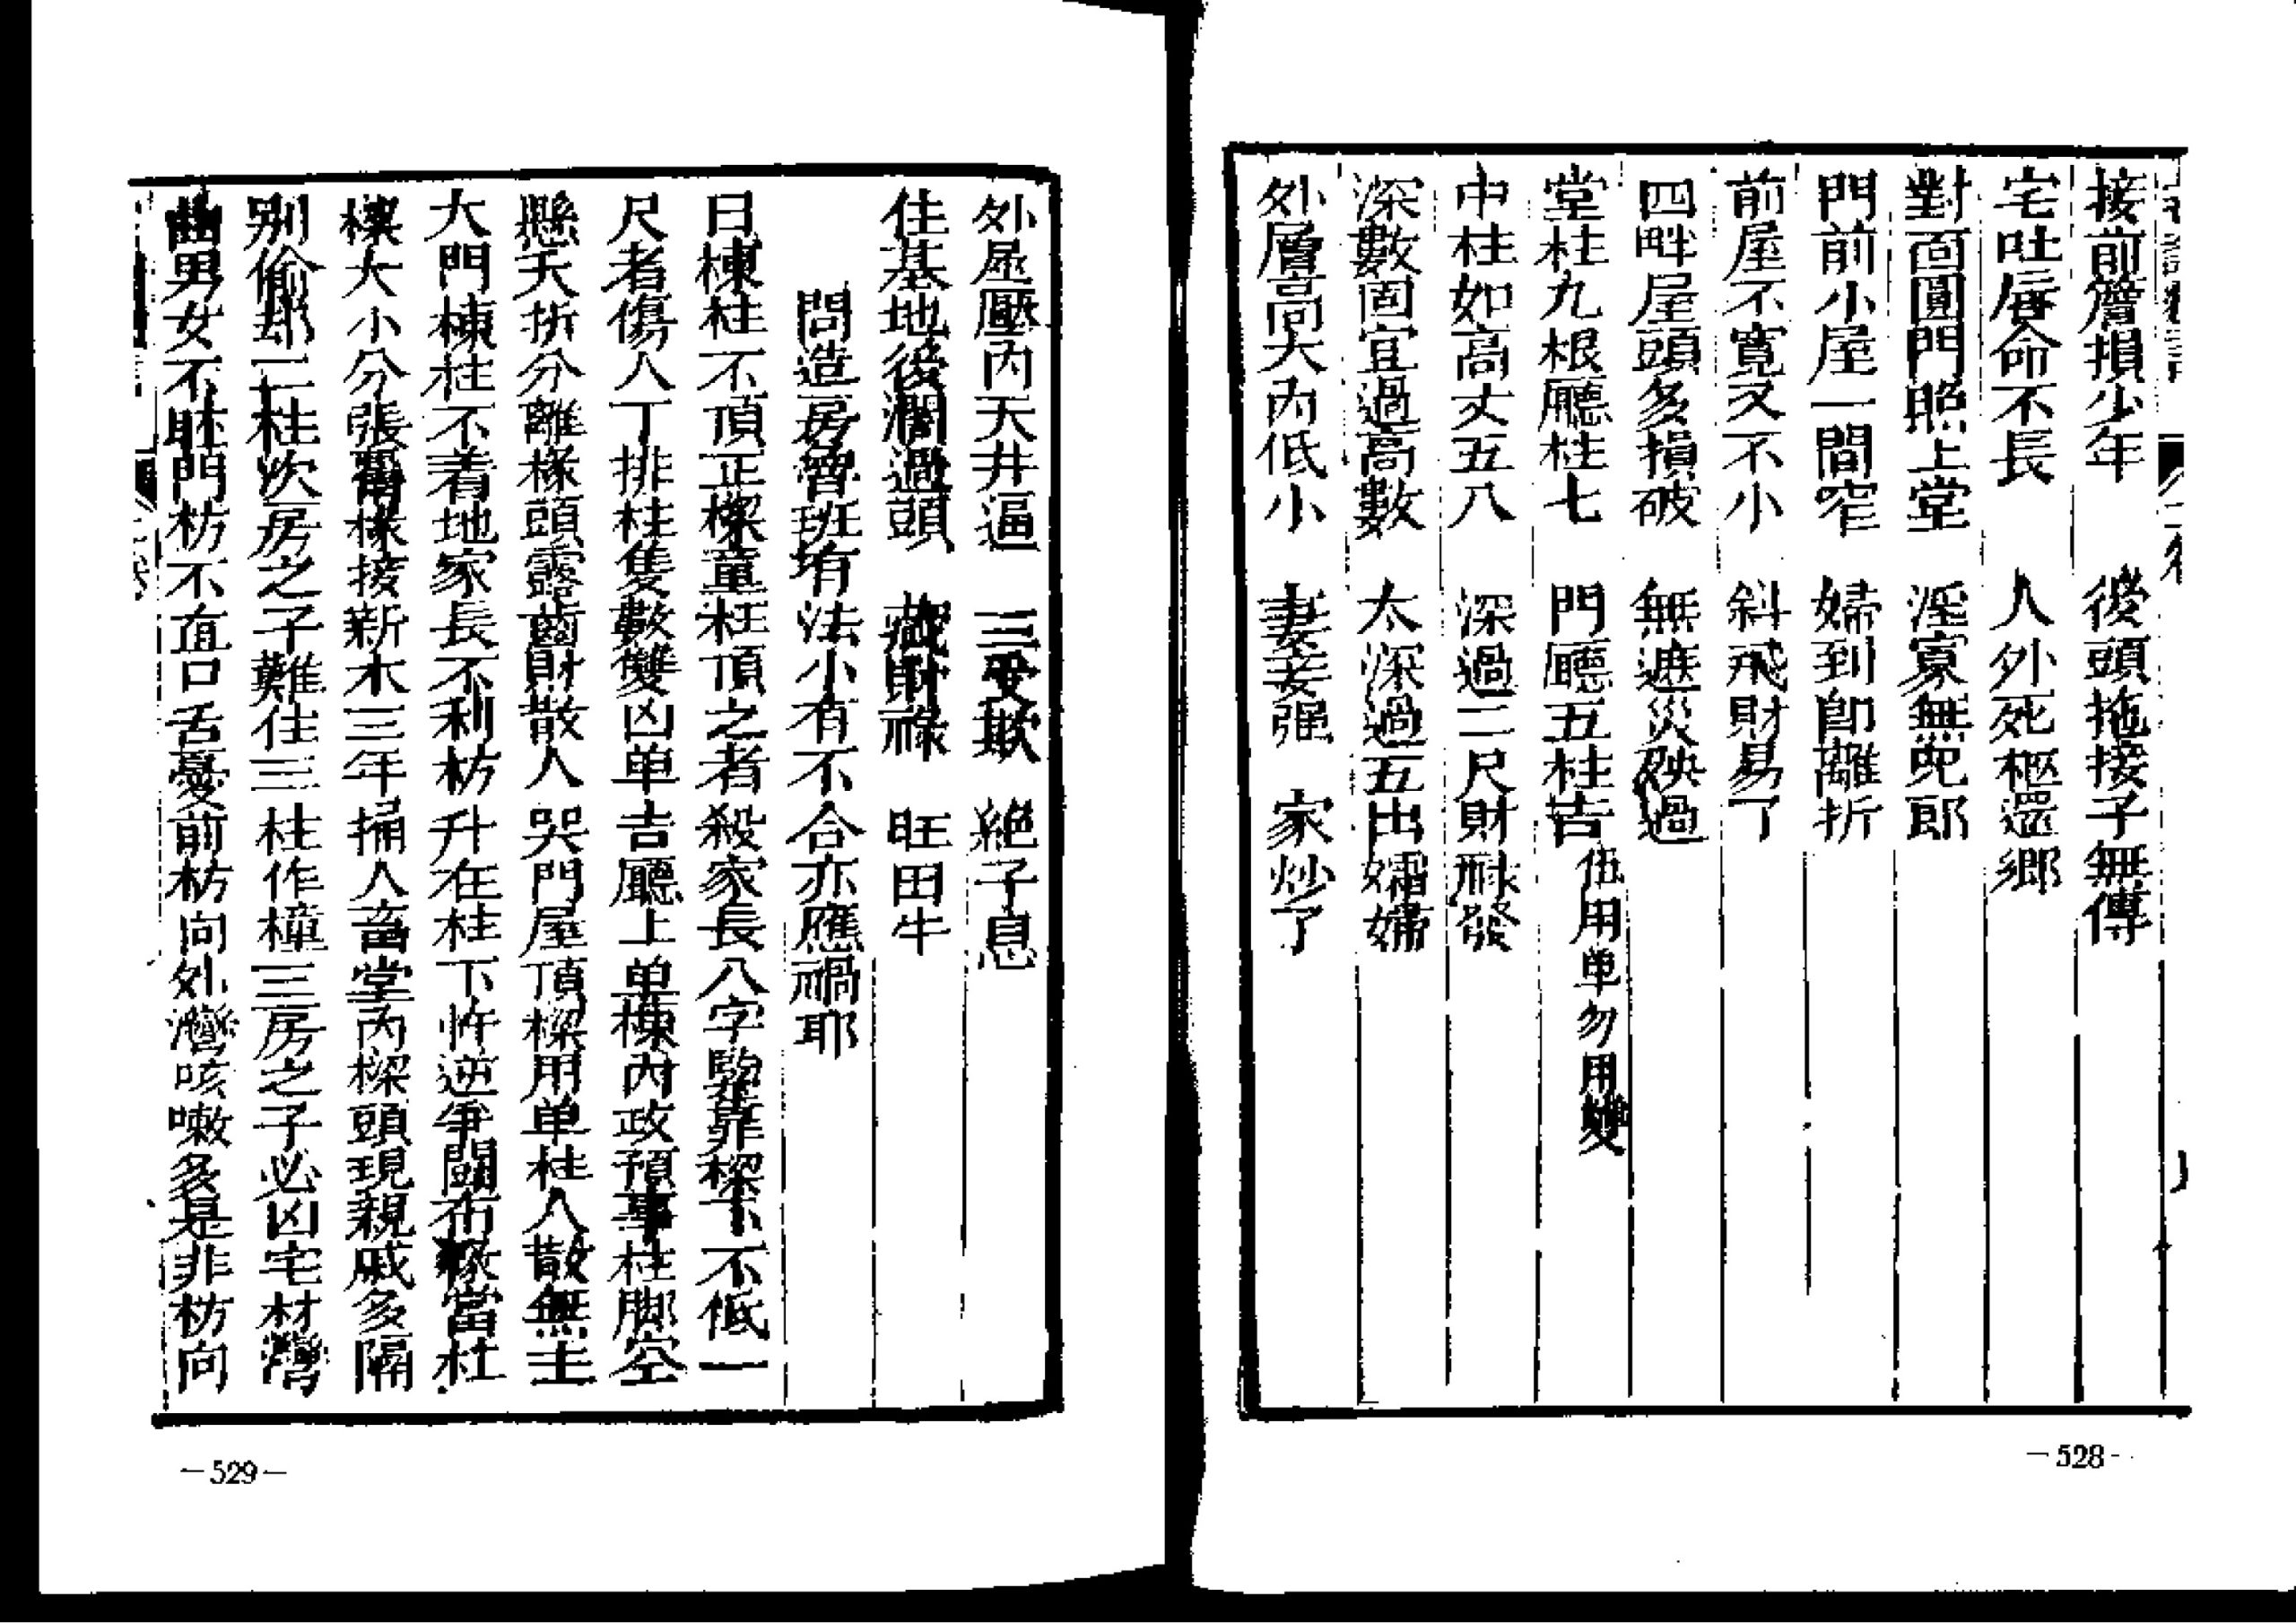 接前簷損少年　後頭拖接子無傳
宅吐唇命不長　人外死柩還鄉
對面圓門照上堂　淫寡無兒郎
門前小屋一間窄　婦到即離折
前屋不寬又不小　斜飛財易了
四畔屋頭多損破　無遮災殃過
堂柱九根廳柱七　門廳五柱吉　伍用单勿用雙
中柱如高丈五八　深過二尺財祿發
深數固宜過高數　太深過五出孀婦
外層高大內低小　妻妾强　家炒了
—528—
外屋壓內天井逼　三受欺　絕子息
住基地後濶過頭　藏財祿　旺田牛
問造房魯班有法小有不合亦應禍耶
曰棟柱不頂正樑童柱頂之者殺家長八字靠樑下不低一
尺者傷人丁排柱隻數雙凶单吉廳上单棟內政預事柱脚空
懸夭折分離椽頭露齒財散人哭門屋頂樑用单柱人散無主
大門棟柱不着地家長不利枋升在柱下忤逆爭鬪布椽當柱
樑大小分張舊椽接新木三年損人畜堂內樑頭現親戚多隔
别偷却二柱次房之子難住三柱作橦三房之子必凶宅材灣
曲男女不睦門枋不直口舌憂前枋向外灣咳嗽多是非枋向
—529—